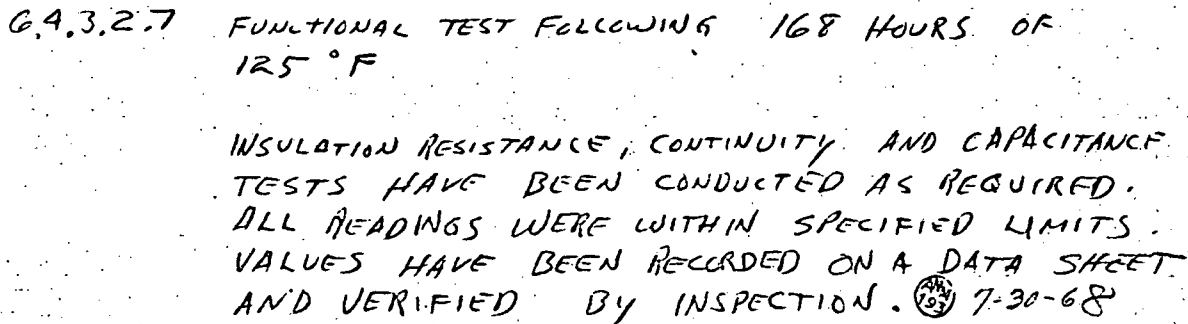 6.4.3.2.7 FUNCTIONAL TEST FOLLOWING 168 HOURS OF
125 °F
INSULATION RESISTANCE, CONTINUITY AND CAPACITANCE
TESTS HAVE BEEN CONDUCTED AS REQUIRED.
ALL READINGS WERE WITHIN SPECIFIED LIMITS.
VALUES HAVE BEEN RECORDED ON A DATA SHEET
AND VERIFIED BY INSPECTION. 7-30-68